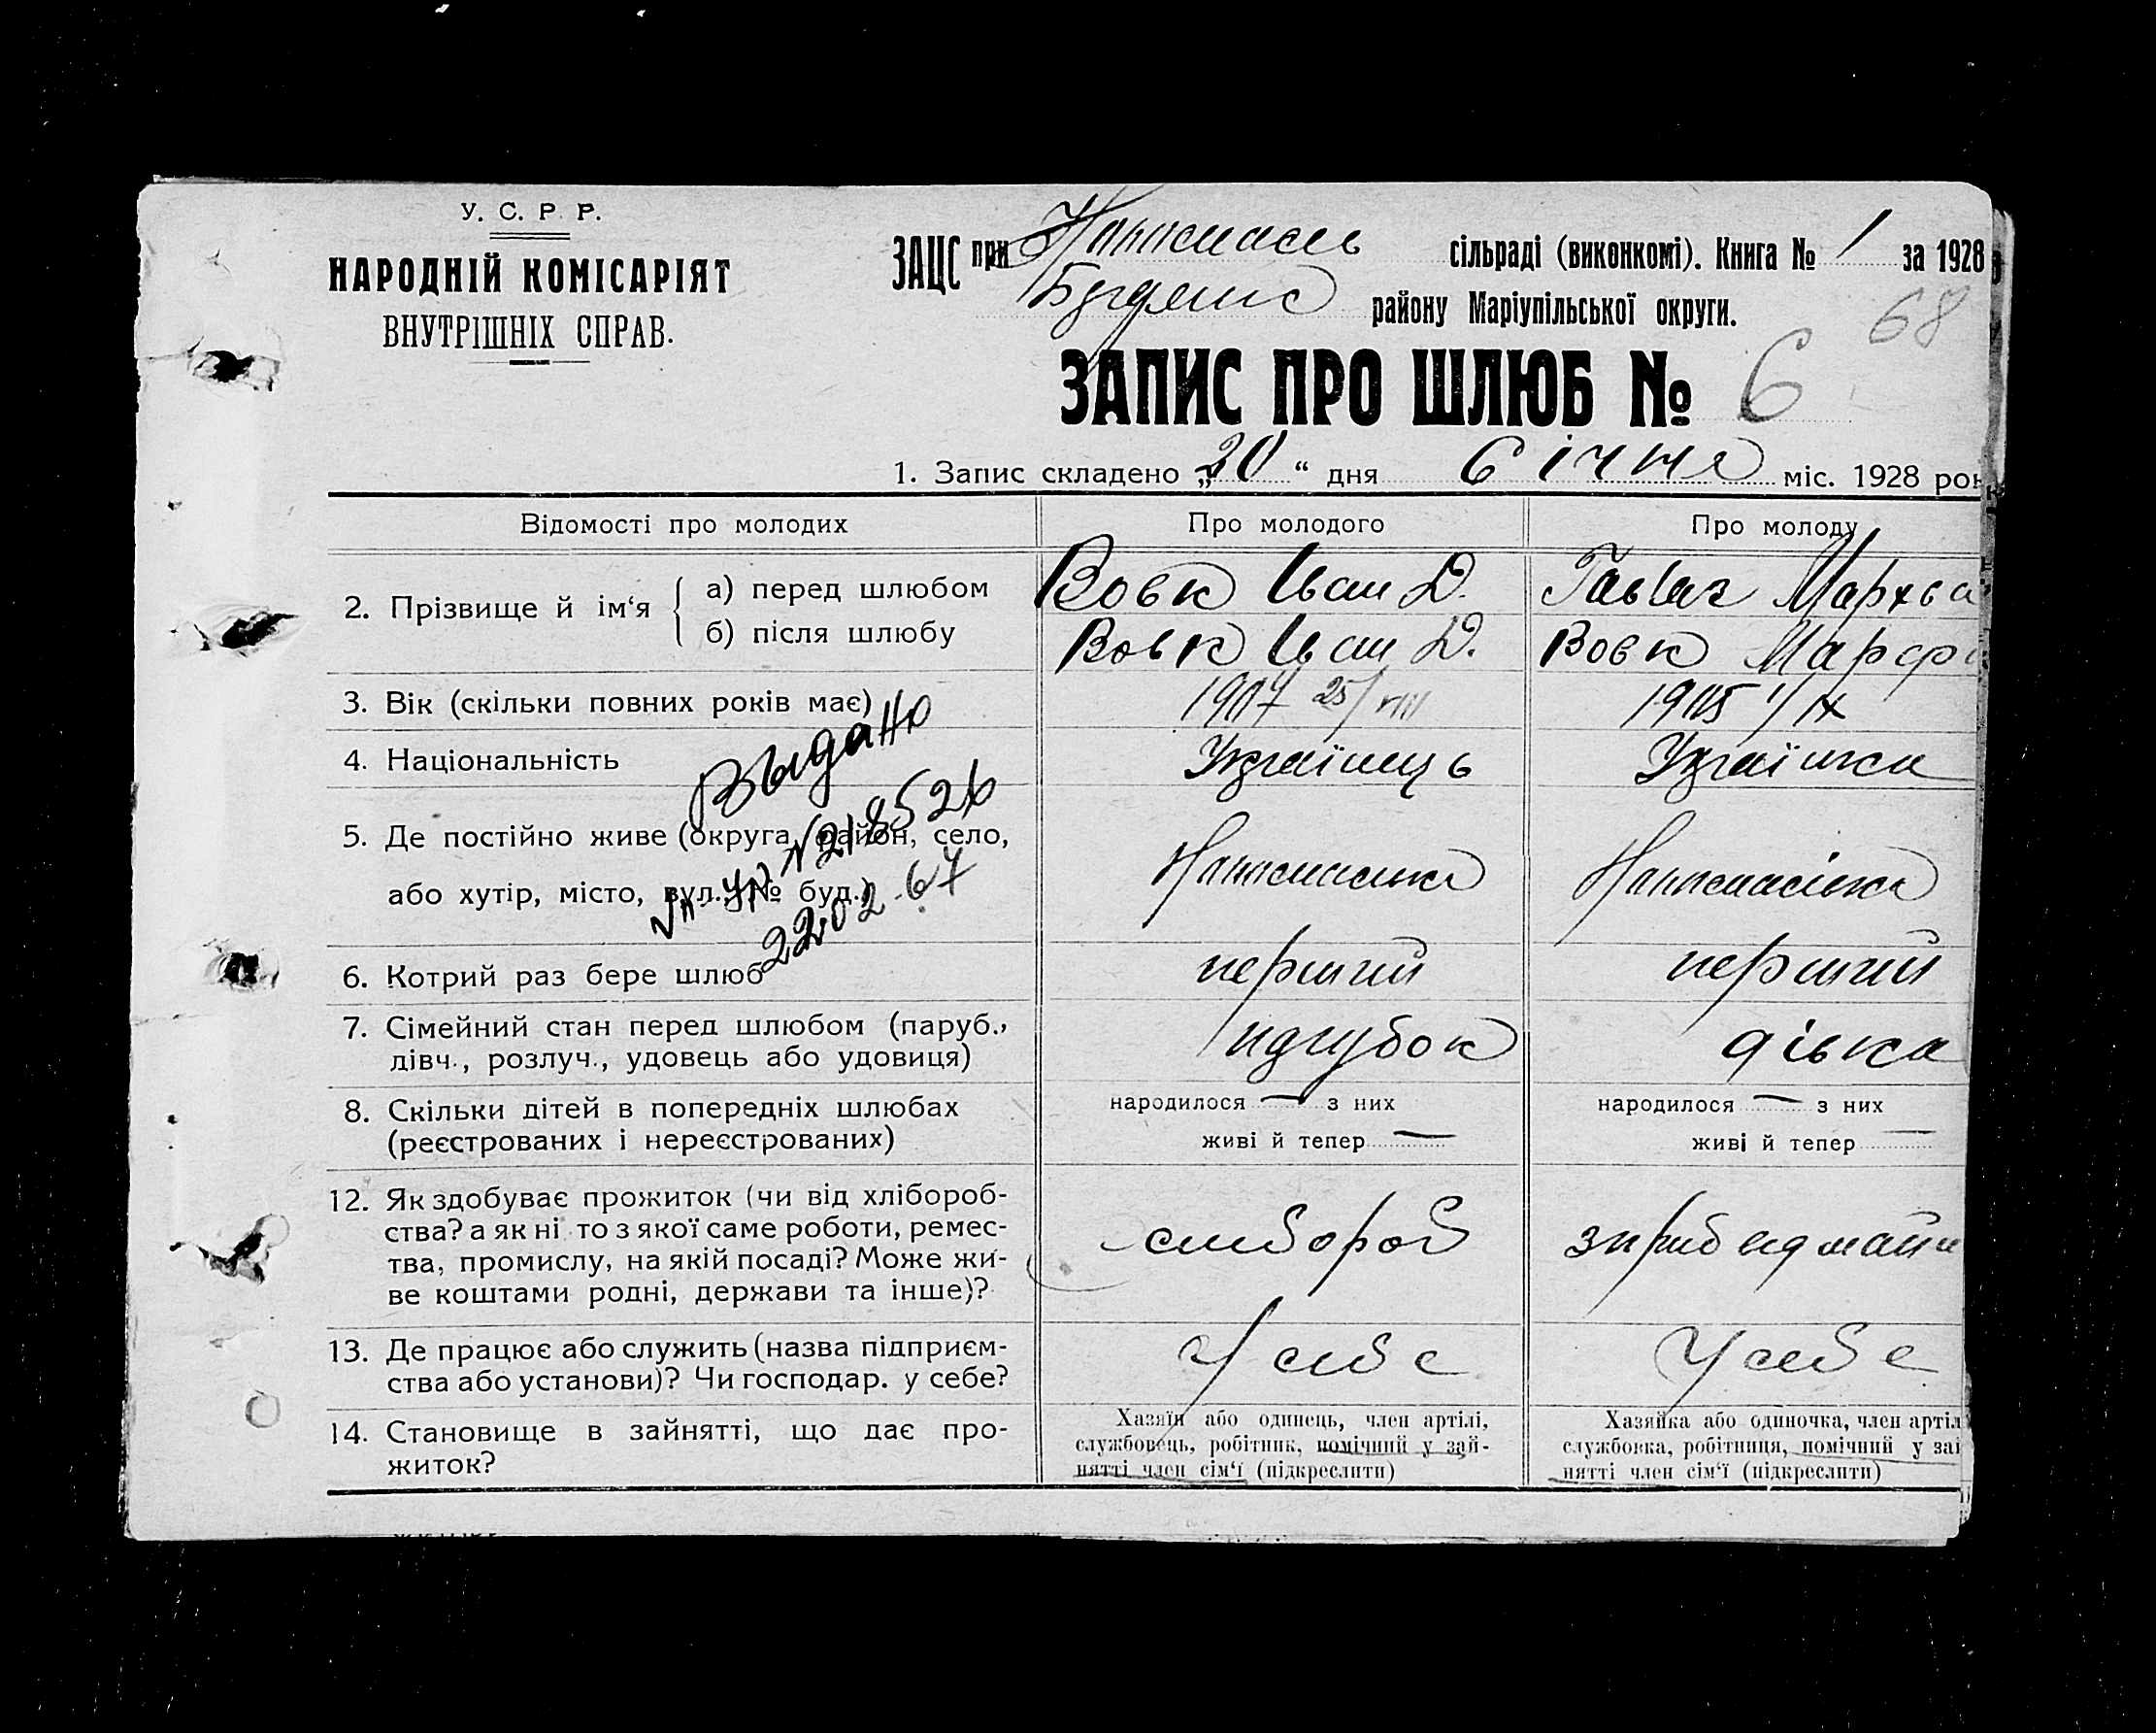 У. С. Р. Р.
НАРОДНІЙ КОМІСАРІЯТ
ВНУТРІШНІХ СПРАВ.
ЗАЦС при сільраді (виконкомі). Книга № 1 за 1928
району Маріупільської округи.
68
ЗАПИС ПРО ШЛЮБ № 6
1. Запис складено „20“ дня січня міс. 1928 рок
Відомості про молодих Про молодого Про молоду
2. Прізвище й ім‘я
а) перед шлюбом Вовк Іван Д. Мархва
б) після шлюбу Вовк Іван Д. Вовк Марфа
3. Вік (скільки повних років має) 1907 25/VIII 1905 1/IX
4. Національність Українець Українка
Выдано
5. Де постійно живе (округа, район, село,
або хутір, місто, вул. № буд.)
22.02.67
6. Котрий раз бере шлюб перший перший
7. Сімейний стан перед шлюбом (паруб.,
дівч., розлуч., удовець або удовиця) парубок дівка
8. Скільки дітей в попередніх шлюбах
(реєстрованих і нереєстрованих)
народилося — з них
живі й тепер —
народилося — з них
живі й тепер —
12. Як здобуває прожиток (чи від хлібороб-
ства? а як ні то з якої саме роботи, ремес-
тва, промислу, на якій посаді? Може жи-
ве коштами родні, держави та інше)?
13. Де працює або служить (назва підприєм-
ства або установи)? Чи господар. у себе?
У себе У себе
14. Становище в зайнятті, що дає про-
житок?
Хазяїн або одинець, член артілі,
службовець, робітник, помічний у зай-
нятті член сім‘ї (підкреслити)
Хазяйка або одиночка, член артіл
службовка, робітниця, помічний у заі
нятті член сім‘ї (підкреслити)